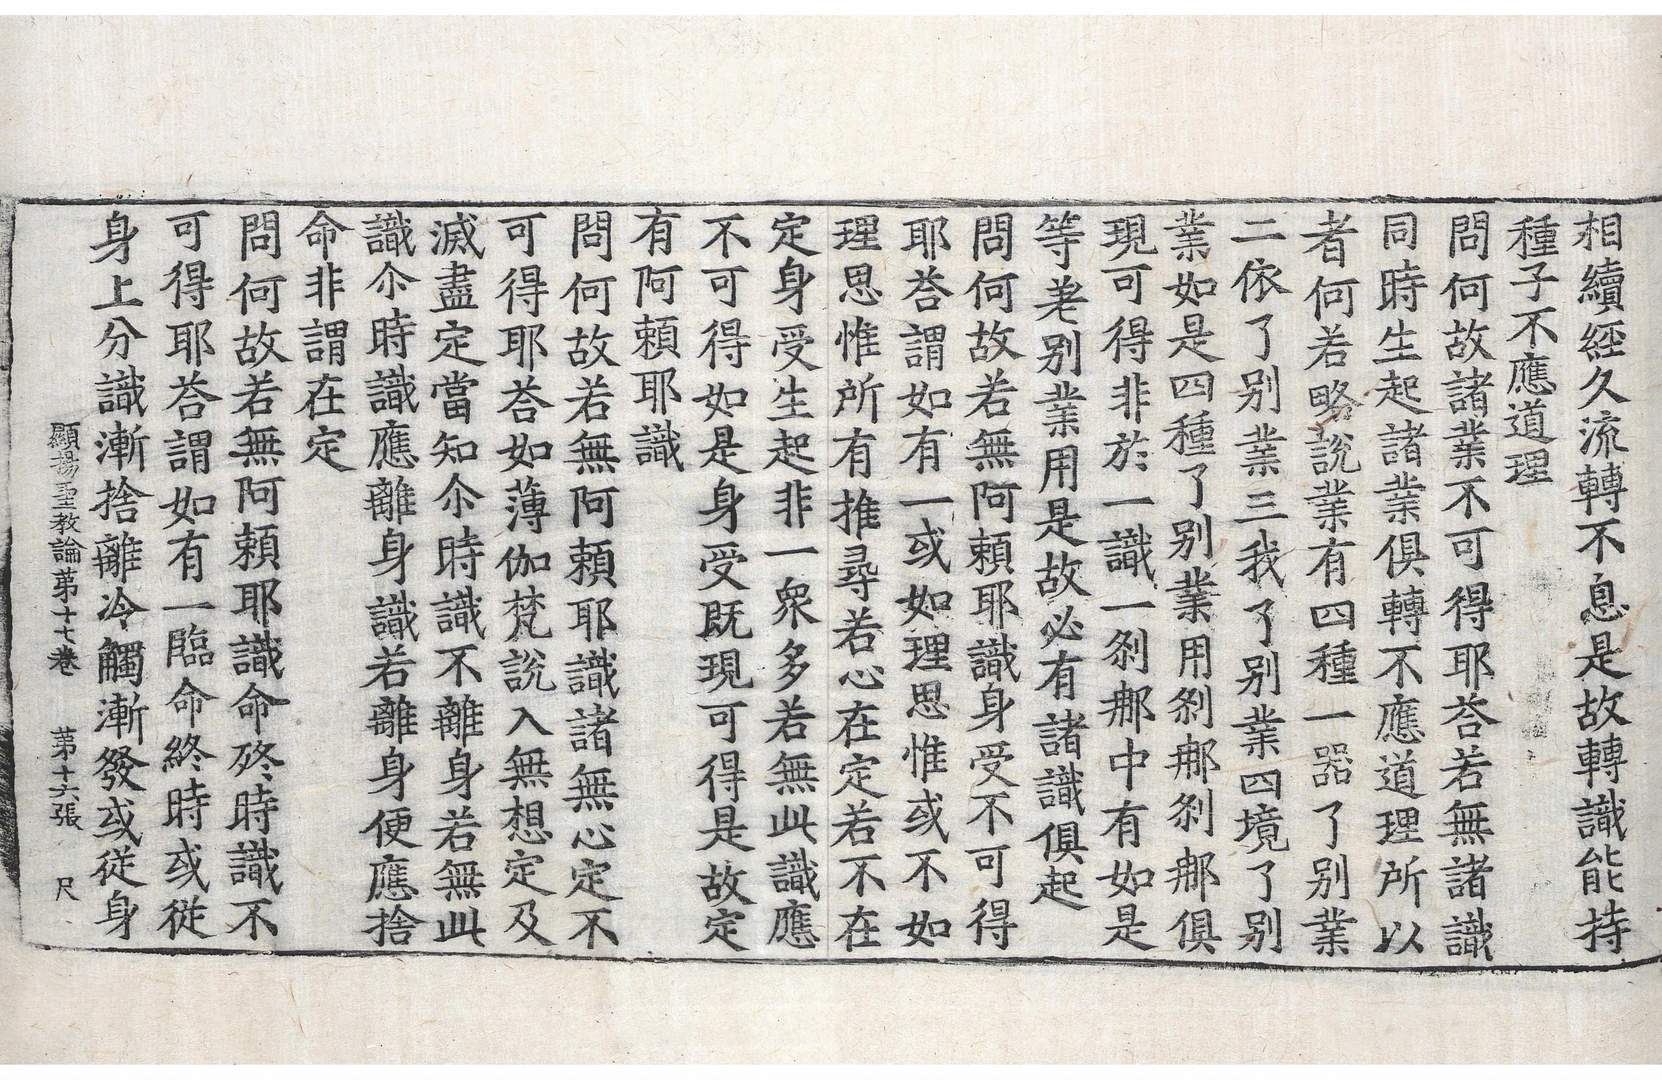 相續經久流轉不息是故轉識能持
種子不應道理
問何故諸業不可得耶荅若無諸識
同時生起諸業俱轉不應道理所以
者何若略說業有四種一器了别業
二依了别業三我了别業四境了别
業如是四種了别業用剎那剎那俱
現可得非於一識一剎那中有如是
等差别業用是故必有諸識俱起
問何故若無阿頼耶識身受不可得
耶荅謂如有一或如理思惟或不如
理思惟所有推尋若心在定若不在
定身受生起非一衆多若無此識應
不可得如是身受既現可得是故定
有阿頼耶識
問何故若無阿頼耶識諸無心定不
可得耶荅如薄伽梵說入無想定及
滅盡定當知尒時識不離身若無此
識尒時識應離身識若離身便應捨
命非謂在定
問何故若無阿頼耶識命終時識不
可得耶荅謂如有一臨命終時或從
身上分識漸捨離冷觸漸發或從身
顯揚聖教論苐十七卷 苐十六張 尺